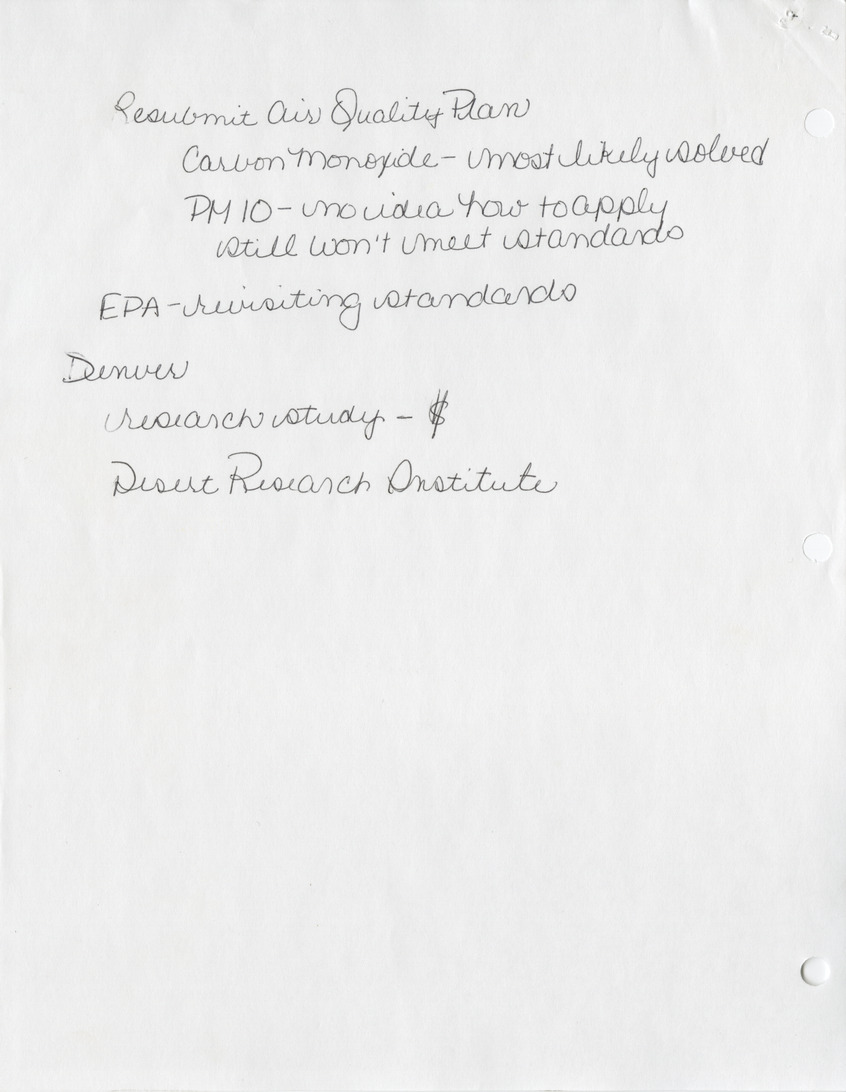 Resubmit Air Quality Plan
Carbon Monoxide - most likely solved
PM 10 - no idea how to apply
still won't meet standards
EPA - revisiting standards
Denver
research study - $
Desert Research Institute